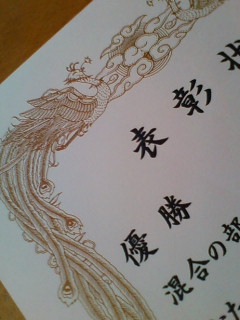 表彰状
優勝
混合の部